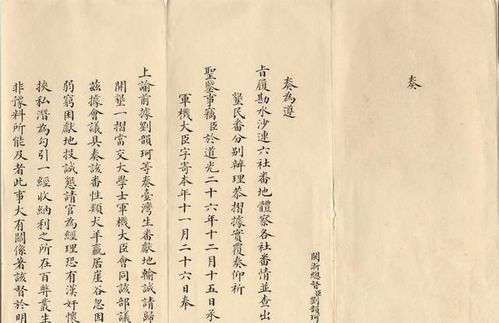 奏
閩浙總督臣劉韻珂
奏為遵
旨履勘水沙連六社番地體察各社番情並查出
墾民番分別辦理恭摺據實覆奏仰祈
聖鑒事竊臣於道光二十六年十二月十五日承
軍機大臣字寄本年十一月二十六日奉
上諭前據劉韻珂等奏臺灣生番獻地輸誠請歸
開墾一摺當交大學士軍機大臣會同該部議
茲據會議具奏該番性類犬羊羸居崖谷忽因
弱窮困獻地投誠懇請官為經理恐有漢奸懷
挾私潛為勾引一經收納利之所在百弊叢生
非豫料所能及者此事大有關係著該督於明